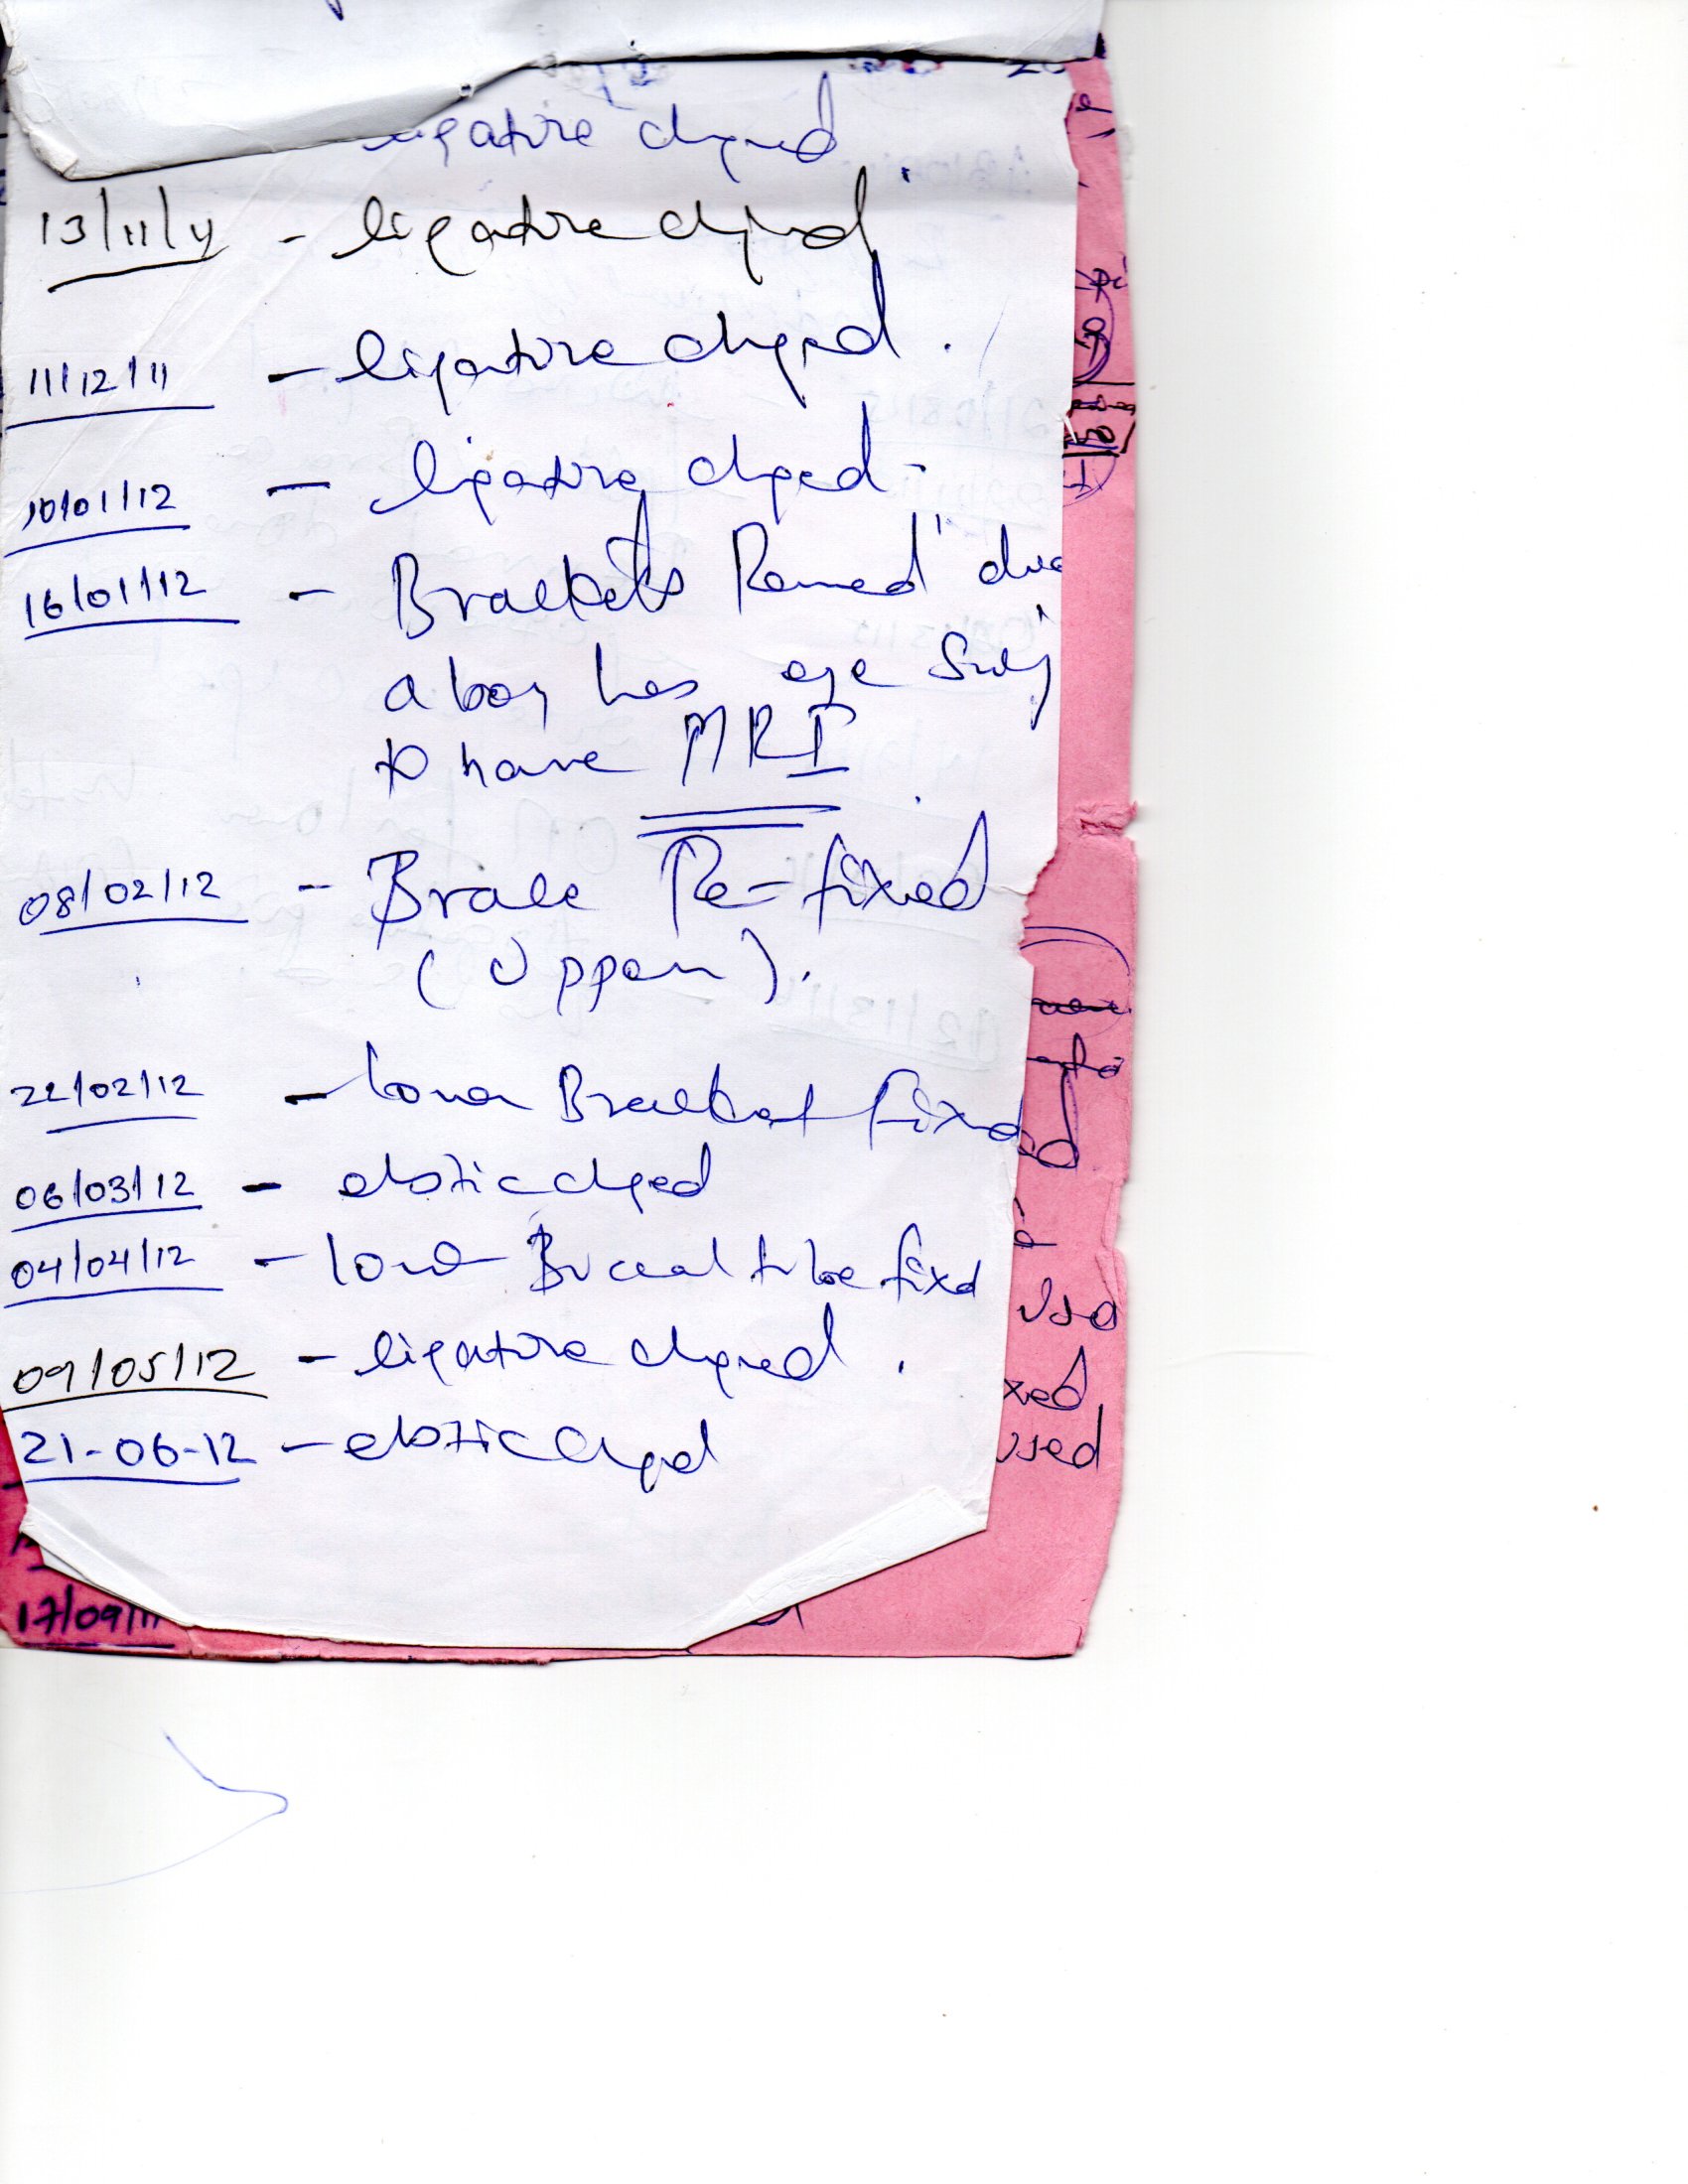 ligature chged
13/11/11 - ligature chged
11/12/11 - ligature chged.
10/01/12 - ligature chged -
16/01/12 - Brackets Remed due
a boy has eye
to have MRI
08/02/12 - Brace Re-fixed
(Upper).
22/02/12 - lower Bracket fixed
06/03/12 - elastic chged
04/04/12 - lower Buccal tube fixd
09/05/12 - ligature chged.
21-06-12 - elastic chged
used
17/09/11